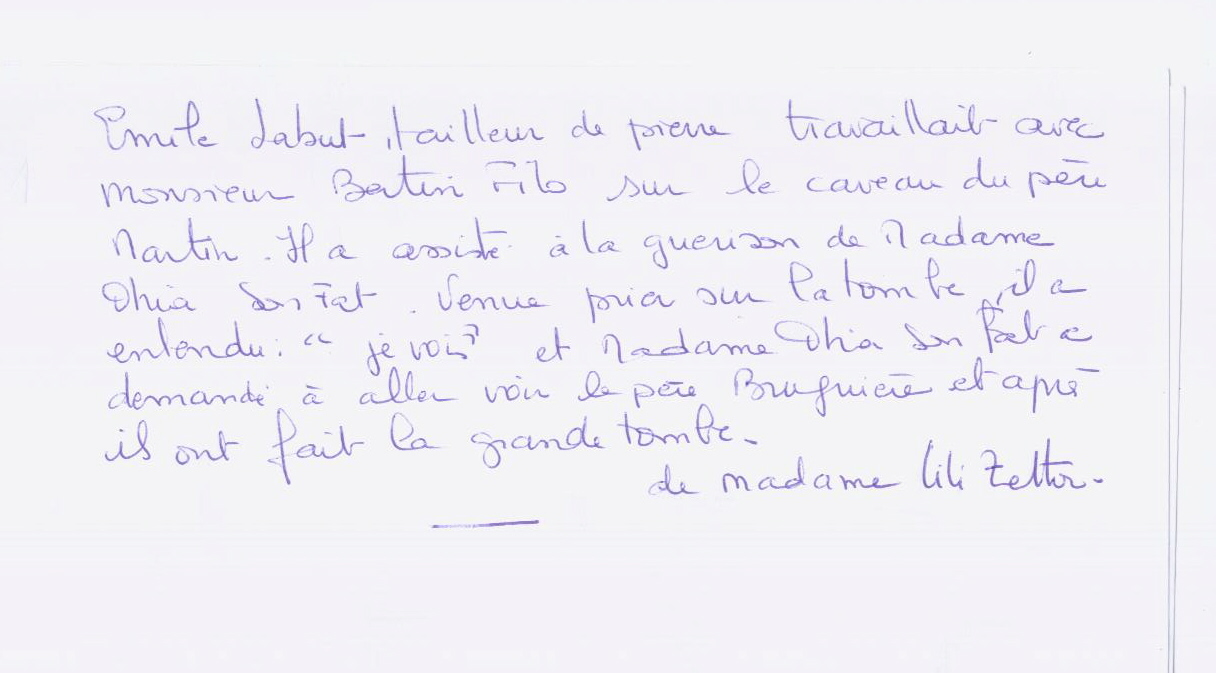 Emile Labut, tailleur de pierre travaillait avec
monsieur Bertin Filo sur le caveau du père
Martin. Il a assisté à la guerison de Madame
Dhia Son Fat. Venue prier sur la tombe, il a
entendu: "je vois" et Madame Dhia Son Fat a
demandé à aller voir le père Bruguière et après
ils ont fait la grande tombe.
de madame Lili Zettor.